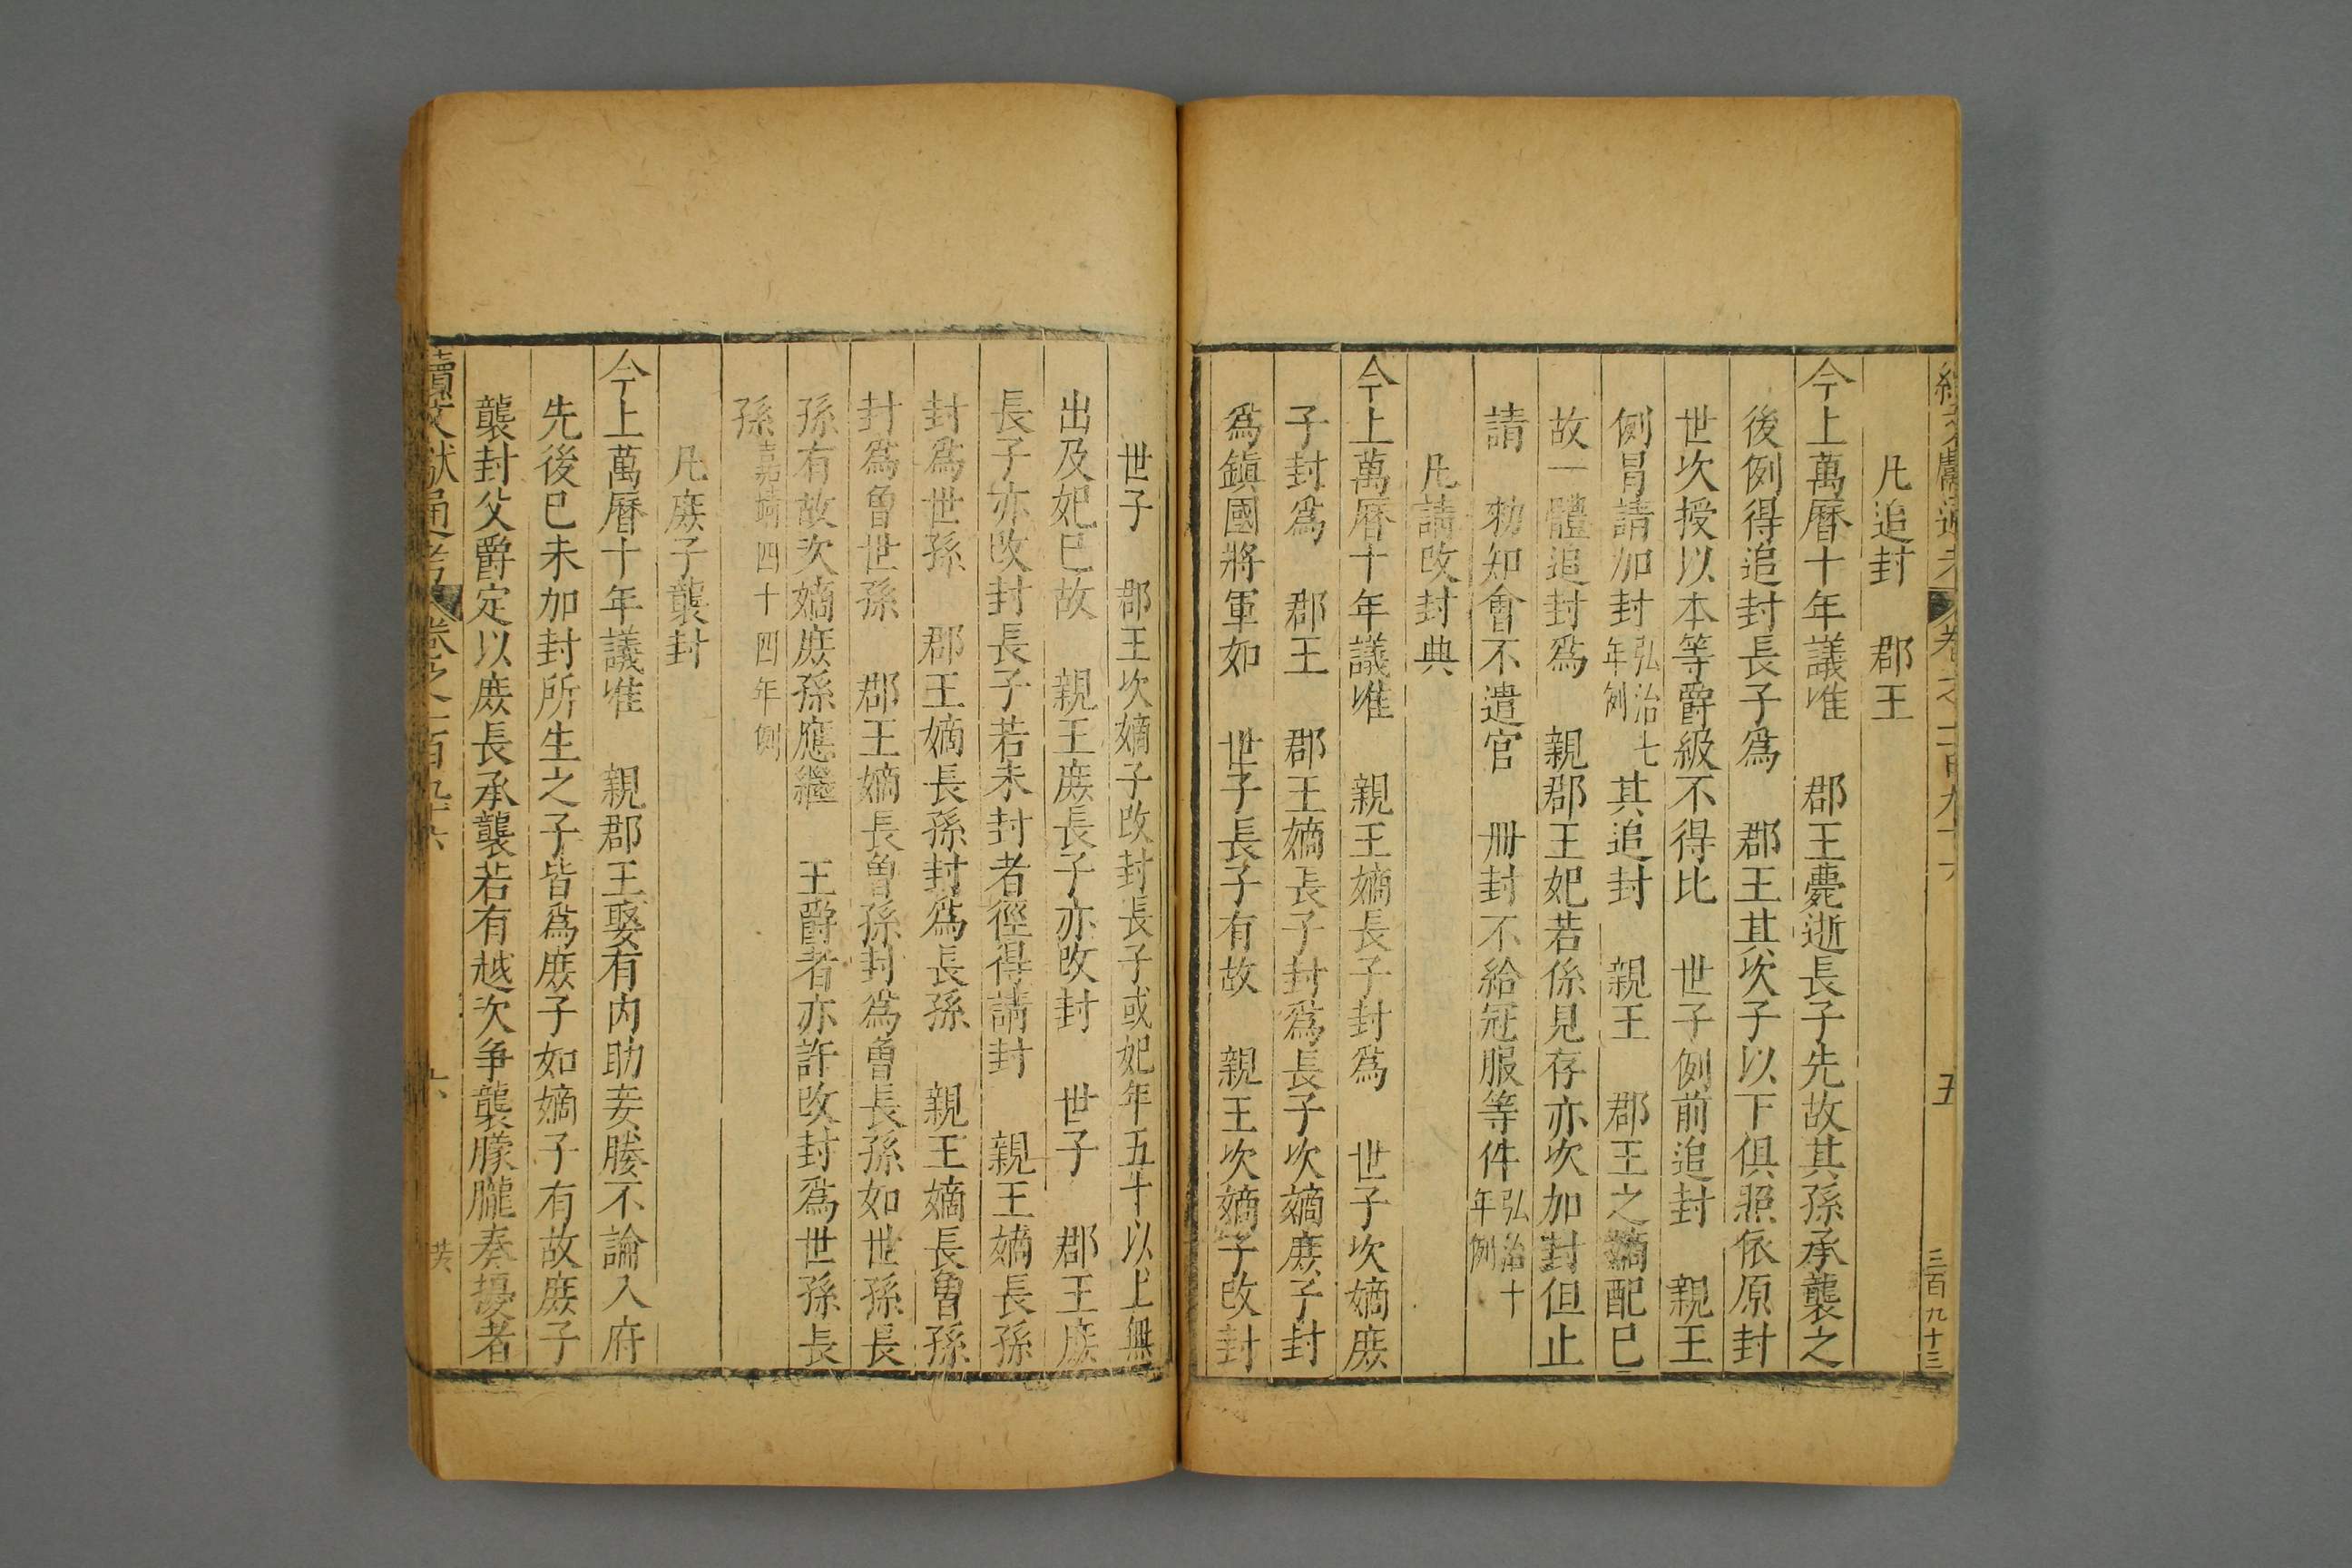 續文獻通考 卷之二百九十六 五 三百九十三
凡追封 郡王
今上萬曆十年議准 郡王薨逝長子先故其孫承襲之
後例得追封長子爲 郡王其次子以下俱照依原封
世次授以本等爵級不得比 世子例前追封 親王
例冐請加封弘治七年例其追封 親王 郡王之嫡配已
故一體追封爲 親郡王妃若係見存亦次加封但止
請 勑知會不遣官 冊封不給冠服等件弘治十年例
凡請改封典
今上萬曆十年議准 親王嫡長子封爲 世子次嫡庶
子封爲 郡王 郡王嫡長子封爲長子次嫡庶子封
爲鎮國將軍如 世子長子有故 親王次嫡子改封
世子 郡王次嫡子改封長子或妃年五十以上無
出及妃已故 親王庶長子亦改封 世子 郡王庶
長子亦改封長子若未封者徑得請封 親王嫡長孫
封爲世孫 郡王嫡長孫封爲長孫 親王嫡長曾孫
封爲曾世孫 郡王嫡長曾孫封爲曾長孫如世孫長
孫有故次嫡庶孫應繼 王爵者亦許改封爲世孫長
孫嘉靖四十四年例
凡庶子襲封
今上萬曆十年議准 親郡王娶有内助妾媵不論入府
先後已未加封所生之子皆爲庶子如嫡子有故庶子
襲封父爵定以庶長承襲若有越次爭襲朦朧奏擾者
續文獻通考 卷之二百九十六 六